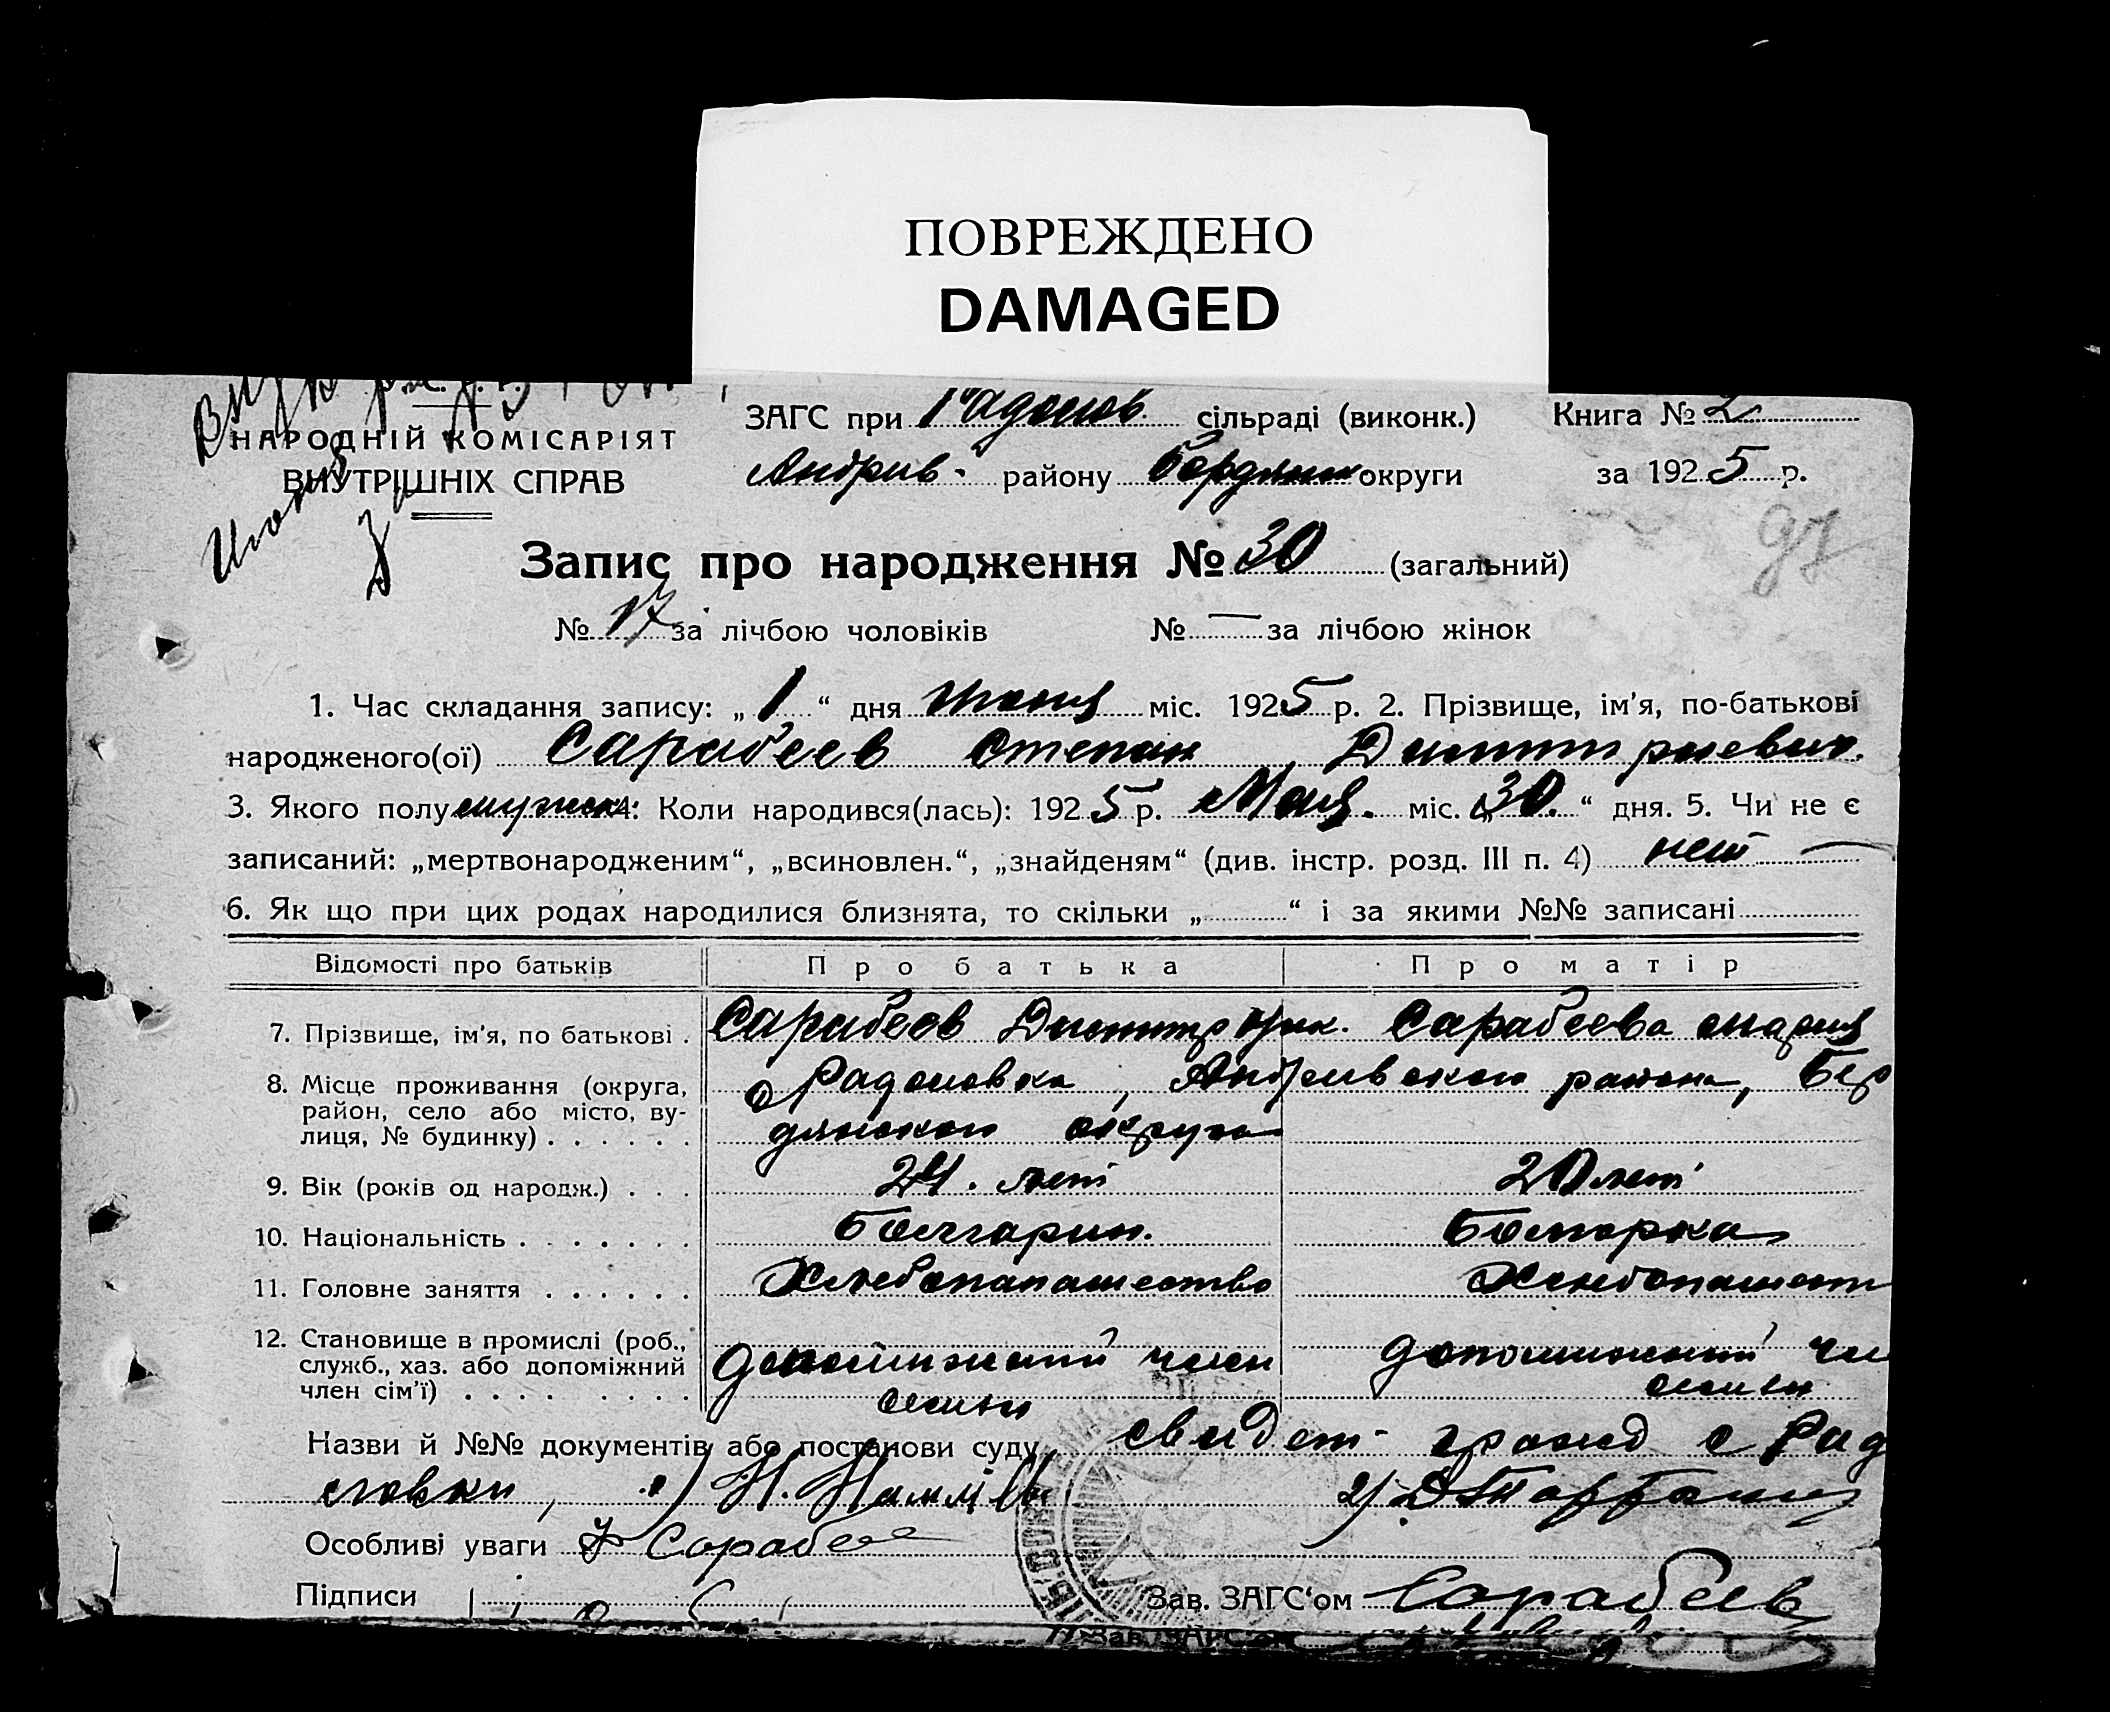 ПОВРЕЖДЕНО
DAMAGED
НАРОДНІЙ КОМІСАРІЯТ
ВНУТРІШНІХ СПРАВ
ЗАГС при Радолов. сільраді (виконк.) Книга № 2
Андрив. району Бердянск округи за 1925 р.
97
Запис про народження № 30 (загальний)
№ 17 за лічбою чоловіків № — за лічбою жінок
1. Час складання запису: „1“ дня июня міс. 1925 р. 2. Прізвище, ім'я, по-батькові
народженого(ої) Сарабеев Степан Дмитриевич.
3. Якого полу мужск 4: Коли народився(лась): 1925 р. Мая. міс. „30.“ дня. 5. Чи не є
записаний: „мертвонародженим“, „всиновлен.“, „знайденям“ (див. інстр. розд. III п. 4) нет —
6. Як що при цих родах народилися близнята, то скільки „ “ і за якими №№ записані
Відомості про батьків Про батька Про матір
7. Прізвище, ім'я, по батькові . Сарабеев Дмитр Сарабеева Мария
8. Місце проживання (округа, район, село або місто, вулиця, № будинку) . . . . . . с Радоловка, Андривского района, Бер
дянской округа
9. Вік (років од народж.) . . . 24. лет 20 лет
10. Національність . . . . . . . Болгарин. Болгарка
11. Головне заняття . . . . . . Хлебопапашество Хлебопашест
12. Становище в промислі (роб., служб., хаз. або допоміжний член сім'ї) . . . . . . . . допоміжний член семьи допоміжний чл семьи
Назви й №№ документів або постанови суду, свидет- гражд с Рад
ловки, 1) Н. 2) Д.
Особливі уваги Сарабее
Підписи Зав. ЗАГС'ом Сарабеев
Зав. ЗАГС'ом